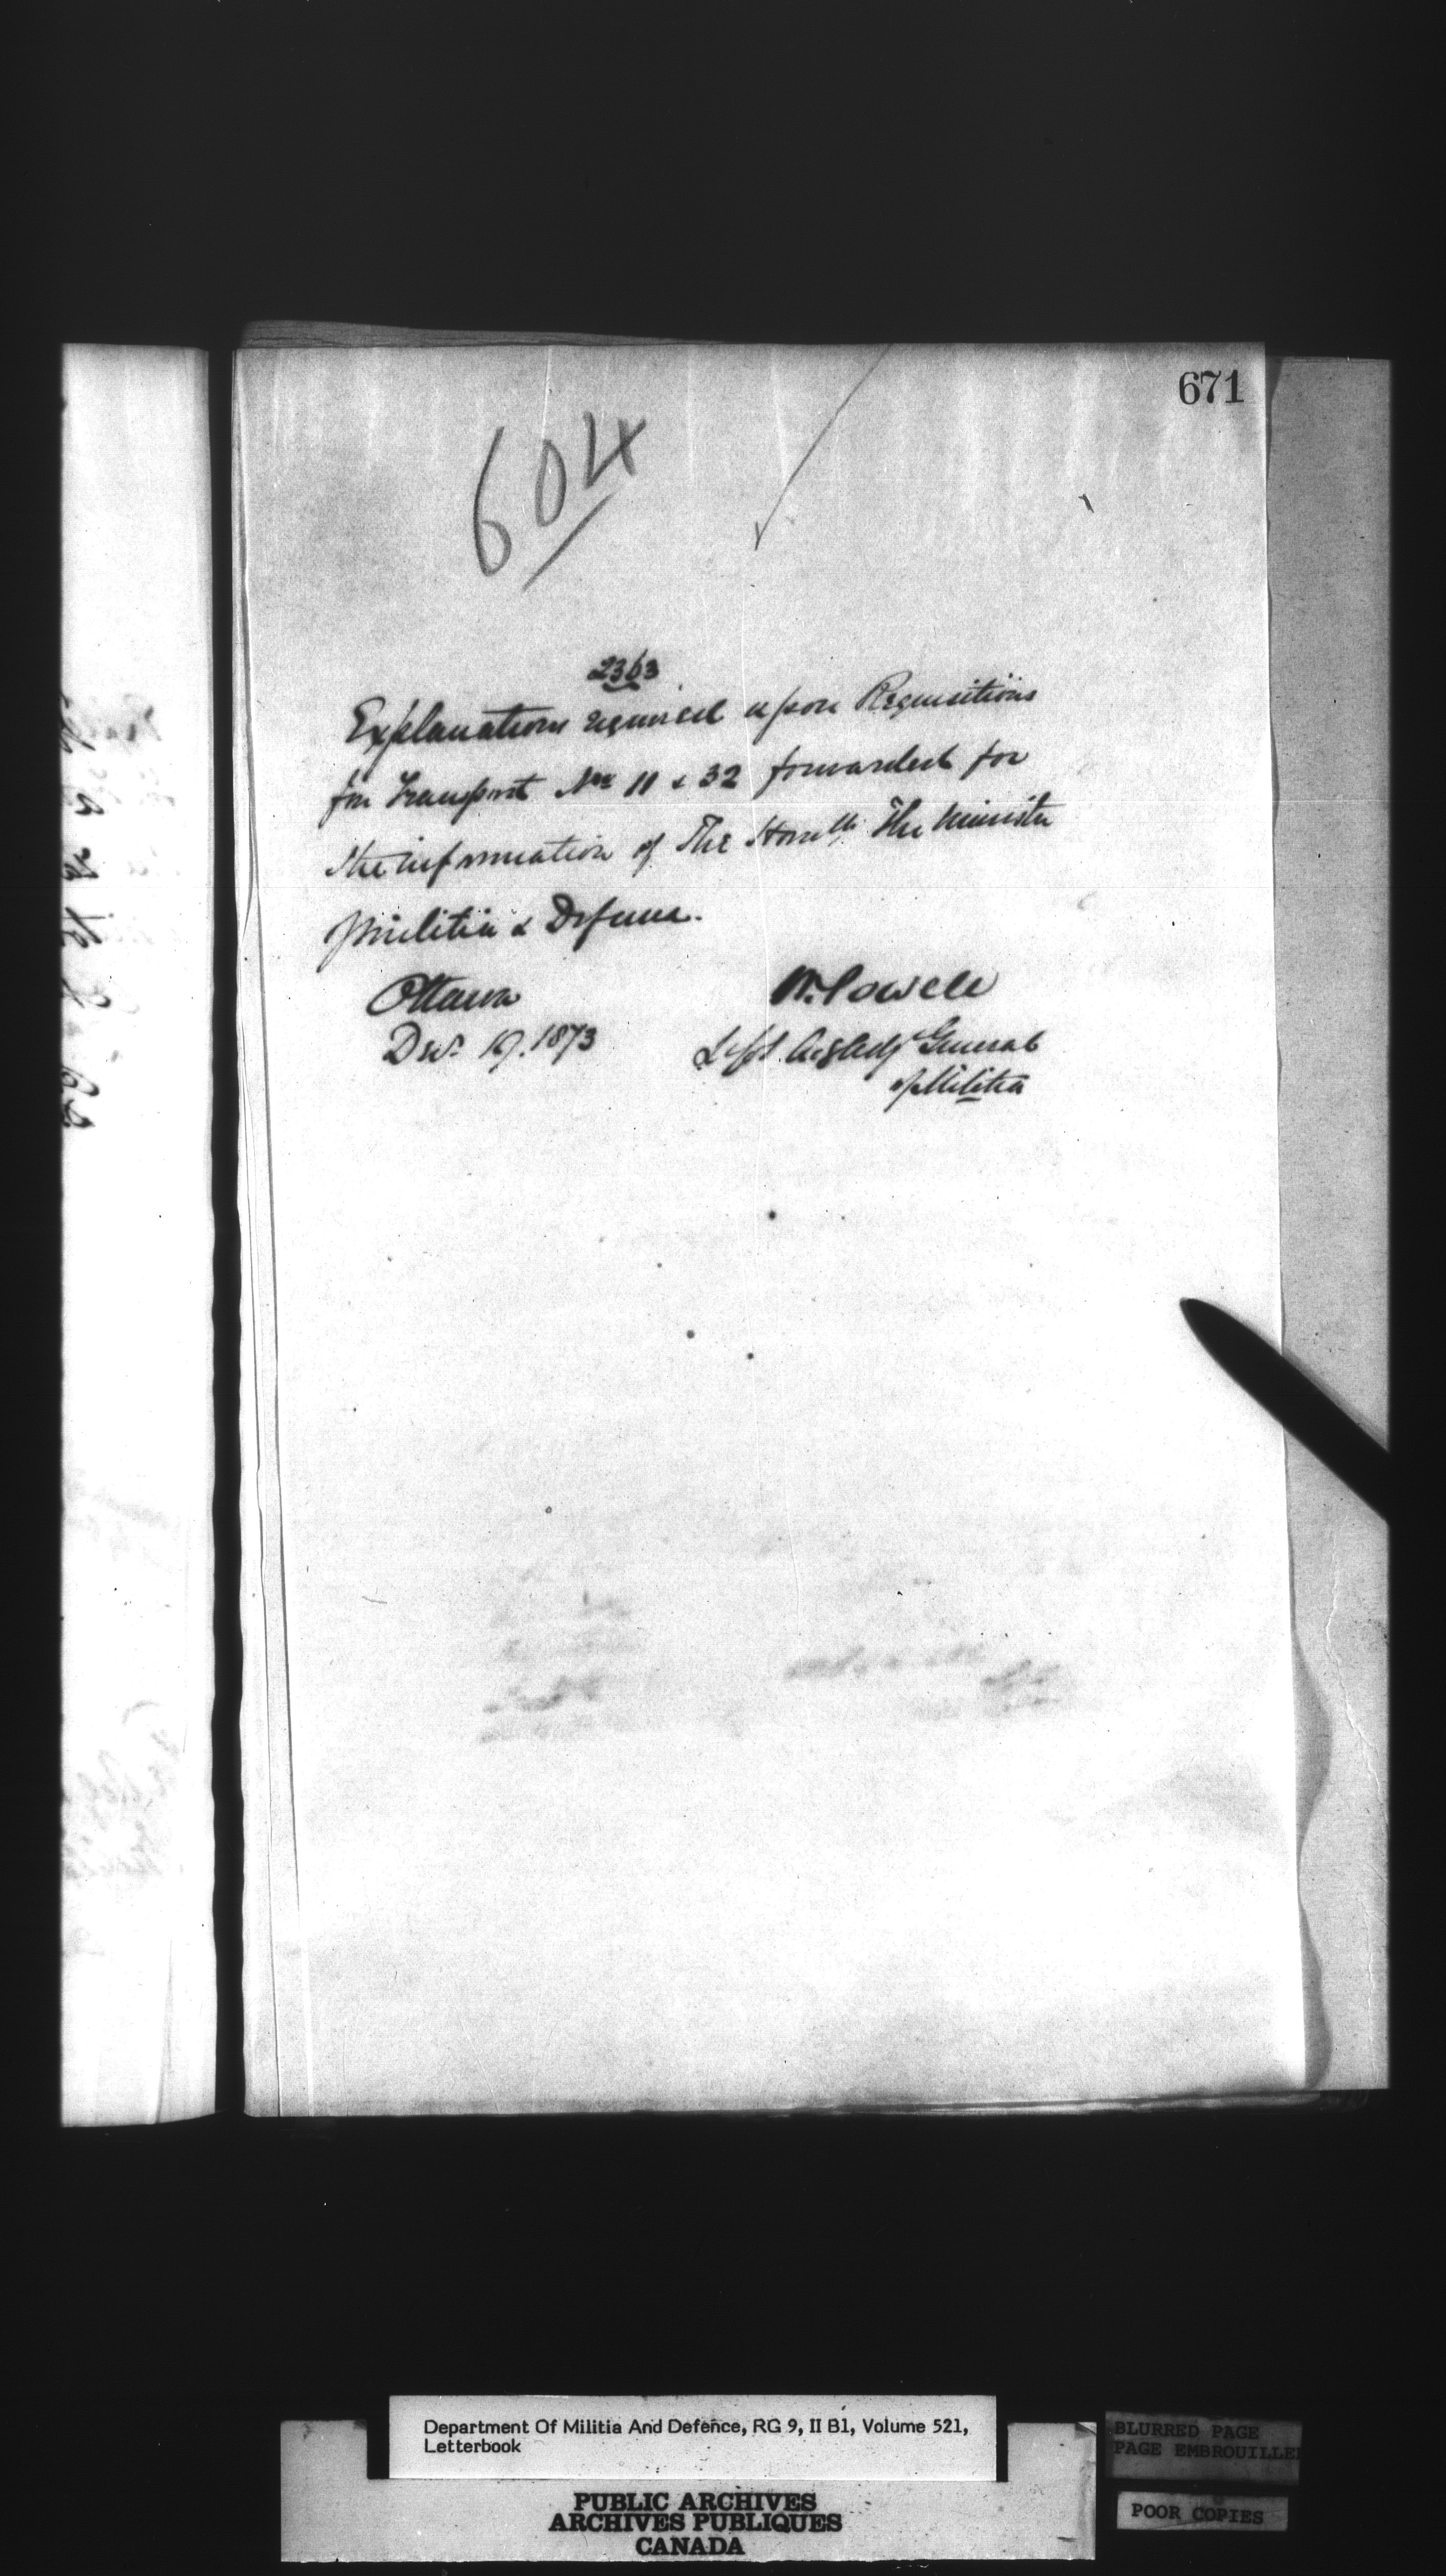 671
604
2363
Explanations required upon Requisitions
for Transport Nos 11 & 32 forwarded for
the information of The Honble The Minister
Militia & Defence.
Ottawa
W. Powell
Decr 19. 1873
General
of Militia
Department Of Militia And Defence, RG 9, II B1, Volume 521,
Letterbook
PUBLIC ARCHIVES
ARCHIVES PUBLIQUES
CANADA
BLURRED PAGE
PAGE EMBROUILLE
POOR COPIES